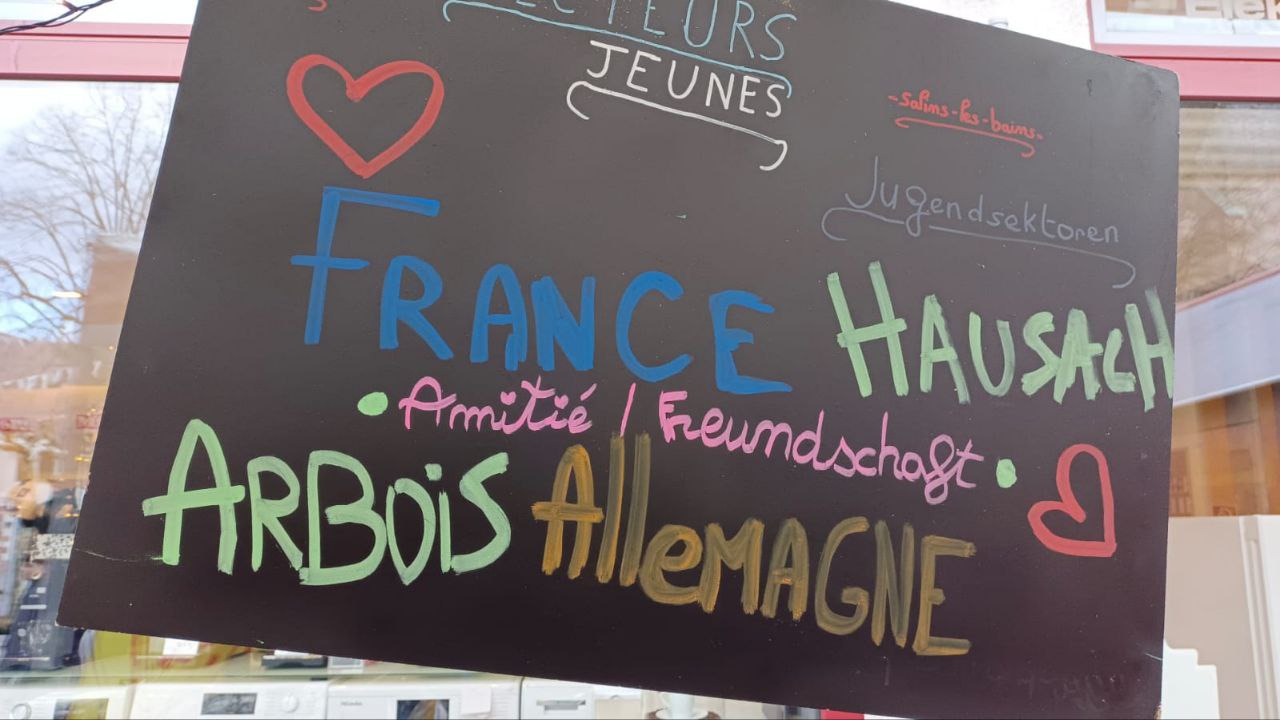 JEUNES
-salins-les-bains-
Jugendsektoren
FRANCE HAUSACH
Amitié / Freundschaft
ARBOiS AlleMAGNE